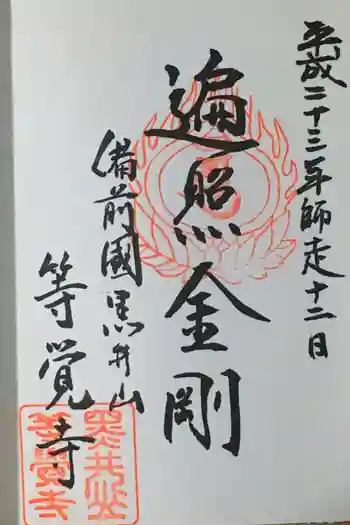 平成二十三年師走十二日
遍照金剛
備前國黒井山
等覚寺
黒井山
等覺寺